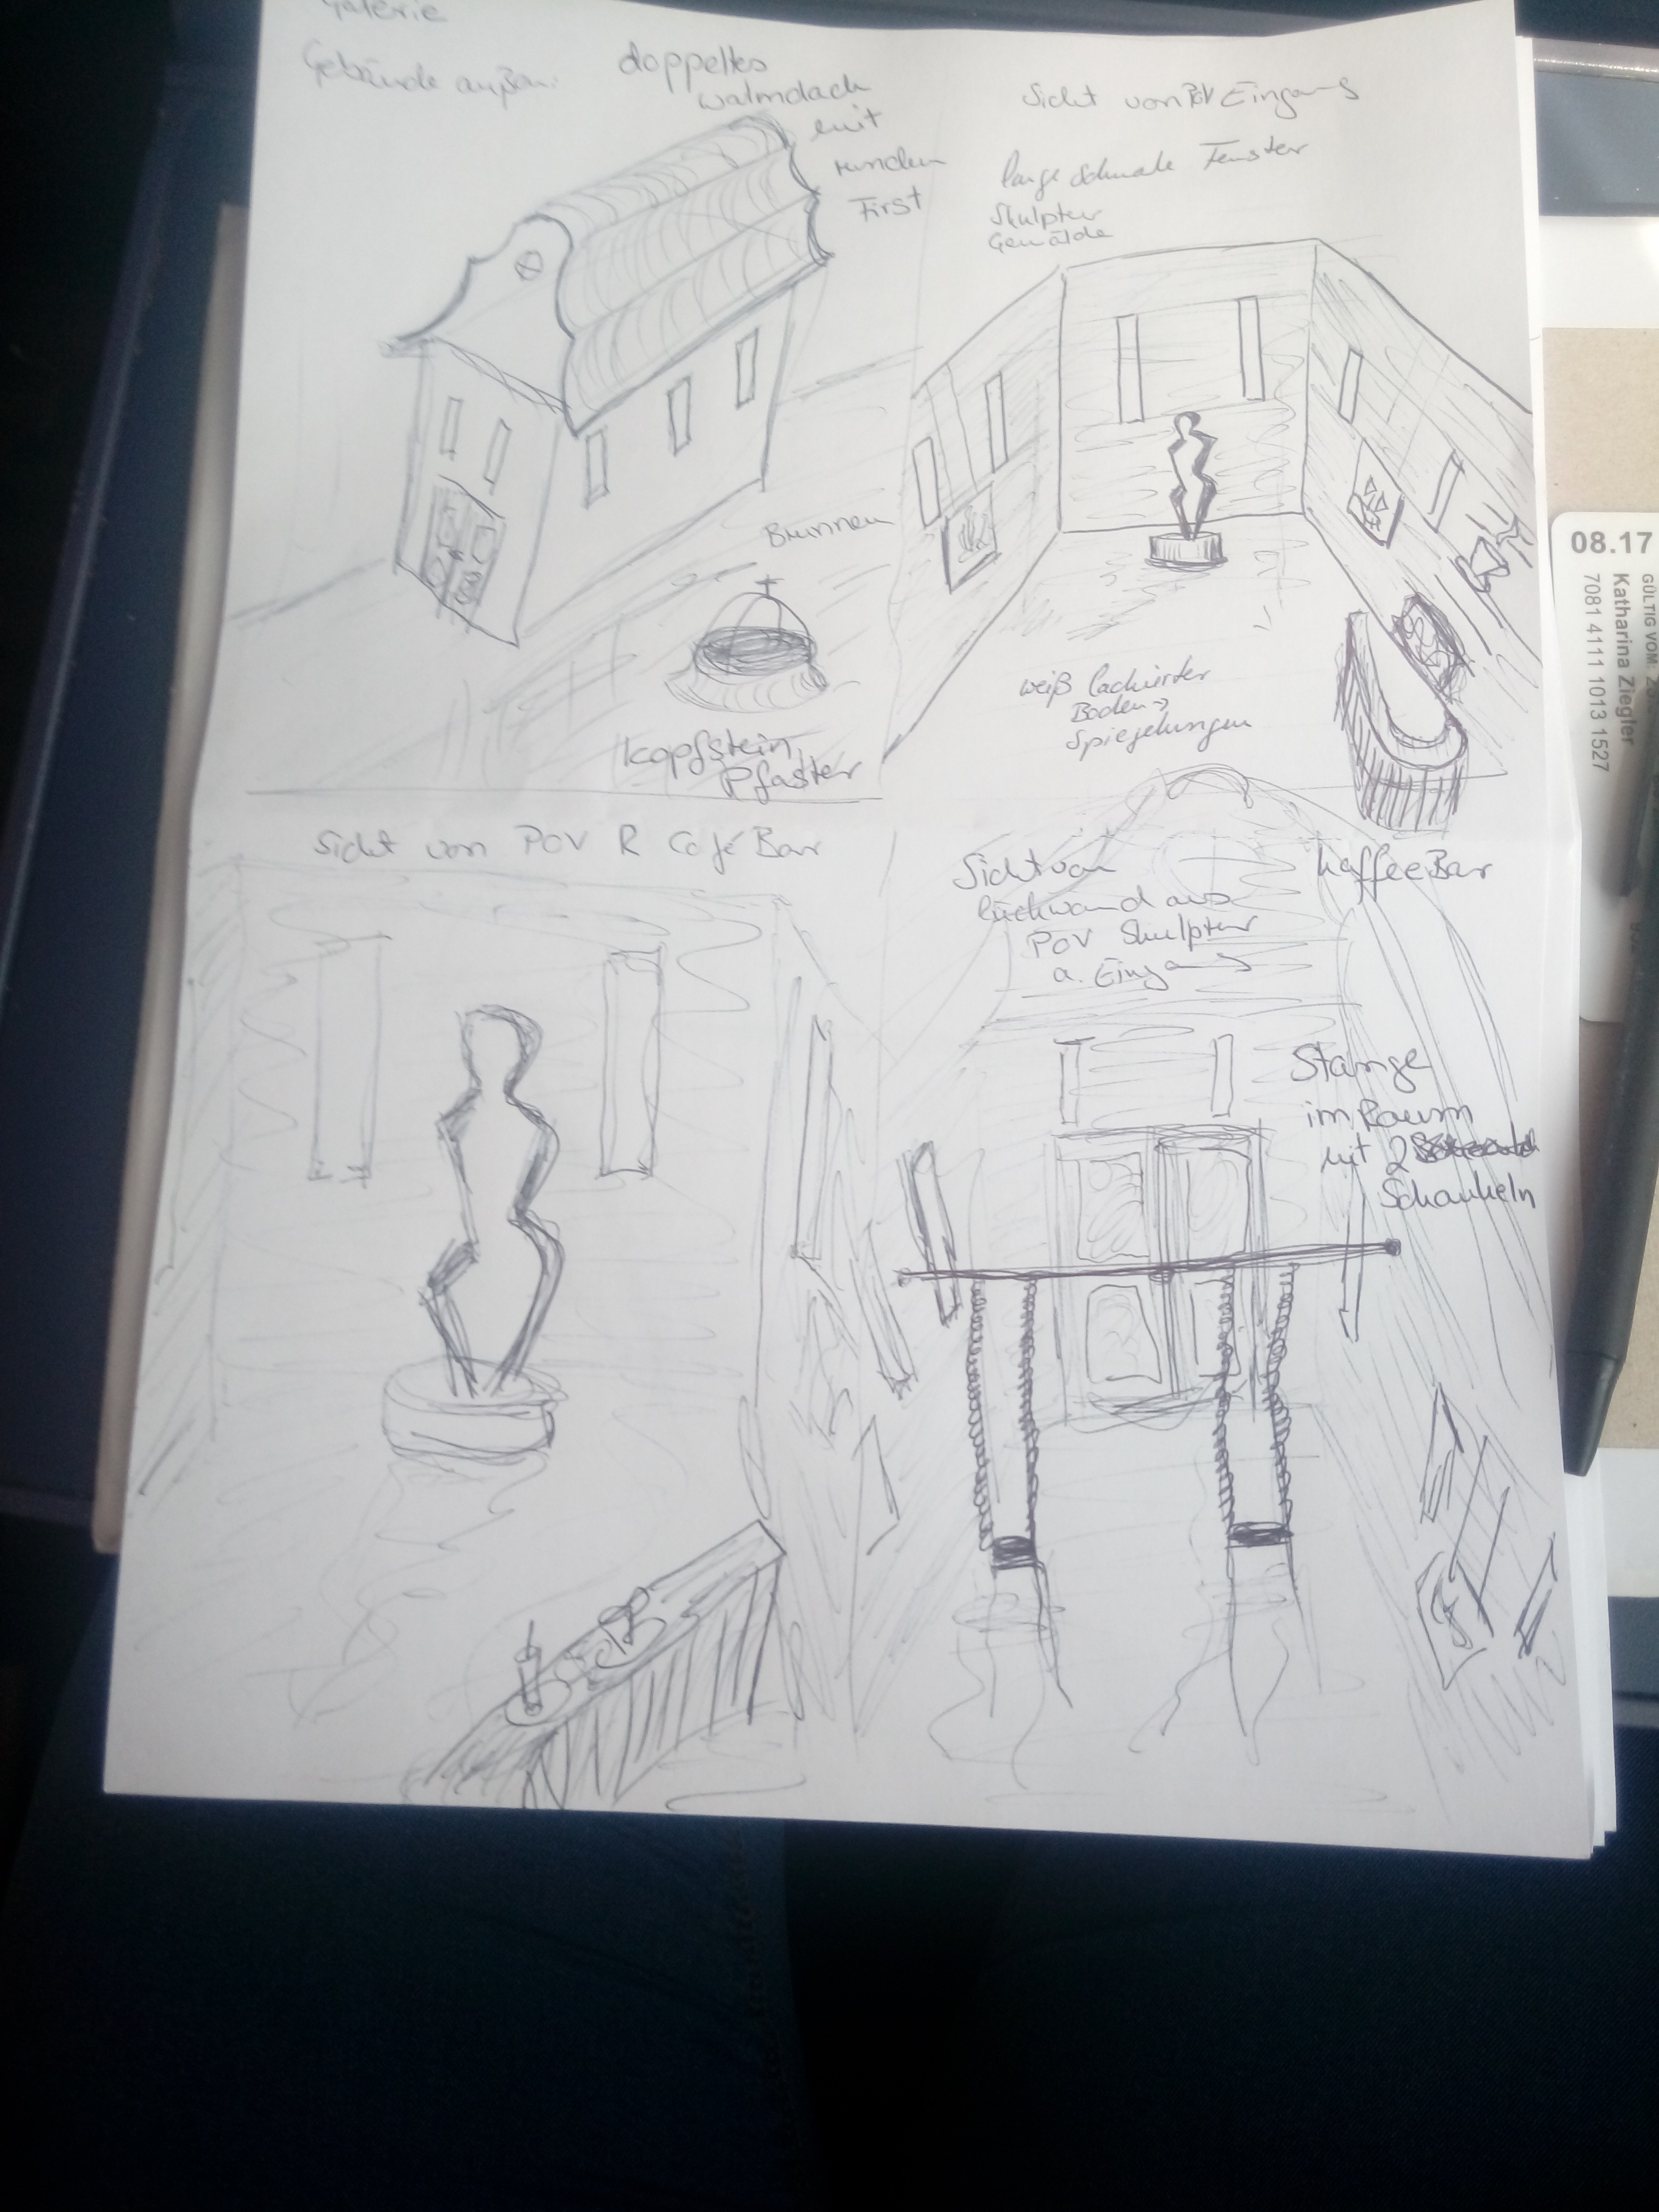 Galerie
Gebäude außen:
doppeltes
Walmdach
mit
runden
First
Brunnen
Kopfstein
Pfaster
Sicht von POV Eingang
lange schmale Fenster
Skulptur
Gemälde
weiß lackierter
Boden →
Spiegelungen
KaffeeBar
Sicht von POV R Café Bar
Sicht von
Rückwand aus
POV Skulptur
a. Eingang
Stange
im Raum
mit 2
Schaukeln
08.17
GÜLTIG VOM:
Katharina Ziegler
7081 4111 1013 1527